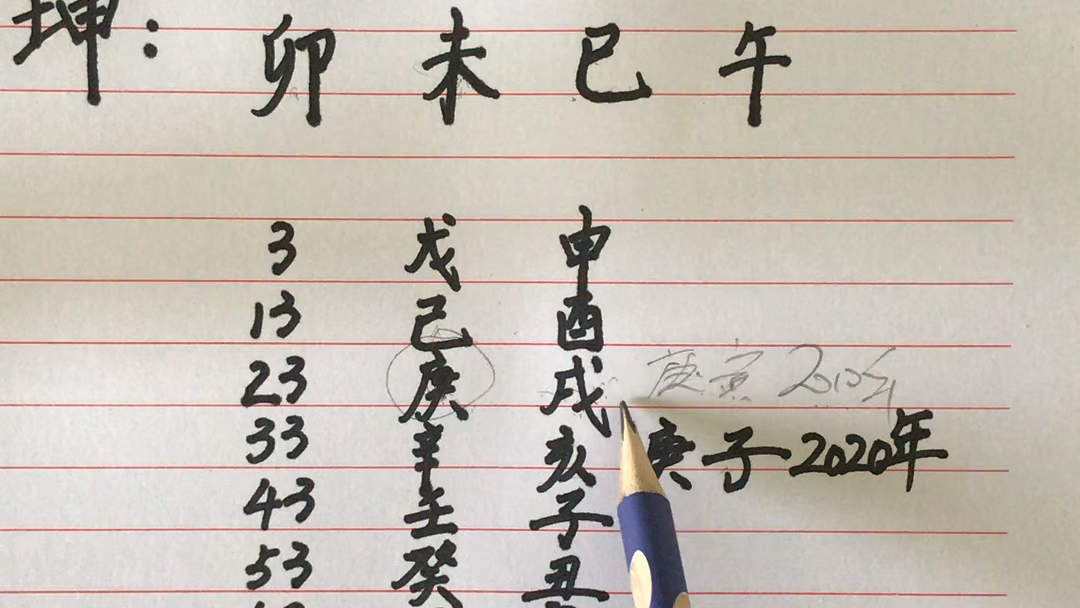 坤：卯 未 巳 午
3 戊 申
13 己 酉
23 庚 戌 庚寅 2010年
33 辛 亥 庚子2020年
43 壬 子
53 癸 丑